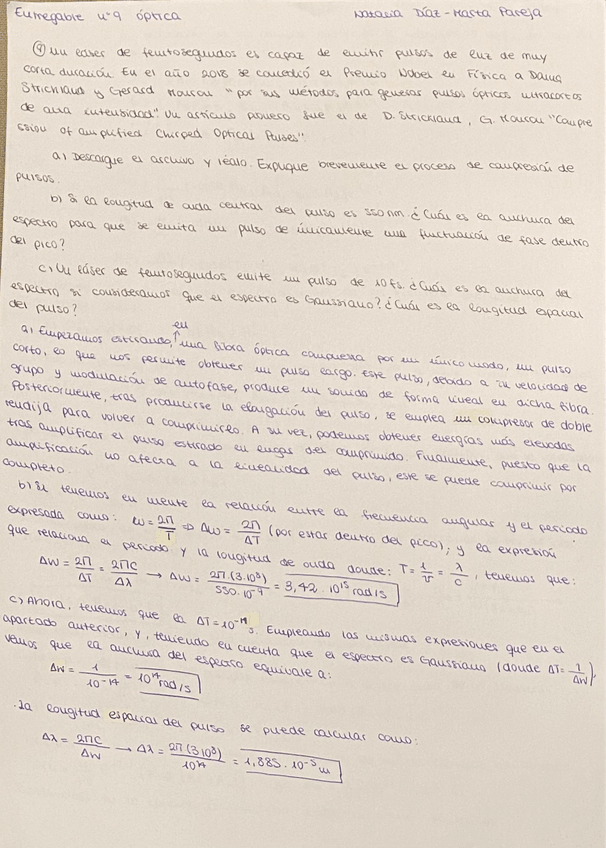 Entregable nº9 óptica Natalia Díaz - Marta Pareja
⑨ Un láser de femtosegundos es capaz de emitir pulsos de luz de muy
corta duración. En el año 2018 se concedió el Premio Nobel en Física a Donna
Strickland y Gerard Mourou "por sus métodos para generar pulsos ópticos ultracortos
de alta intensidad". Un artículo pionero fue el de D. Strickland, G. Mourou "Compre
ssion of amplified Chirped Optical Pulses".
a) Descargue el archivo y léalo. Explique brevemente el proceso de compresión de
pulsos.
b) Si la longitud de onda central del pulso es 550 nm ¿Cuál es la anchura del
espectro para que se emita un pulso de únicamente una fluctuación de fase dentro
del pico?
c) Un láser de femtosegundos emite un pulso de 10 fs. ¿Cuál es la anchura del
espectro si consideramos que el espectro es Gaussiano? ¿Cuál es la longitud espacial
del pulso?
a) Empezamos estirando, en una fibra óptica compuesta por un único modo, un pulso
corto, lo que nos permite obtener un pulso largo. Este pulso, debido a su velocidad de
grupo y modulación de autofase, produce un sonido de forma lineal en dicha fibra.
Posteriormente, tras producirse la elongación del pulso, se emplea un compresor de doble
rendija para volver a comprimirlo. A su vez, podemos obtener energías más elevadas
tras amplificar el pulso estirado en lugar del comprimido. Finalmente, puesto que la
amplificación no afecta a la linealidad del pulso, este se puede comprimir por
completo.
b) Si tenemos en mente la relación entre la frecuencia angular y el periodo
expresada como: ω = 2π/T ⇒ Δω = 2π/ΔT (por estar dentro del pico); y la expresión
que relaciona el periodo y la longitud de onda donde: T = 1/ν = λ/c, tenemos que:
Δω = 2π/ΔT = 2πc/Δλ → Δω = 2π·(3·10⁸)/550·10⁻⁹ = 3,42·10¹⁵ rad/s
c) Ahora, tenemos que la ΔT = 10⁻¹⁴ s. Empleando las mismas expresiones que en el
apartado anterior, y, teniendo en cuenta que el espectro es Gaussiano (donde ΔT = 1/Δω),
vemos que la anchura del espectro equivale a:
Δω = 1/10⁻¹⁴ = 10¹⁴ rad/s
·La longitud espacial del pulso se puede calcular como:
Δλ = 2πc/Δω → Δλ = 2π(3·10⁸)/10¹⁴ = 1,885·10⁻⁵ m